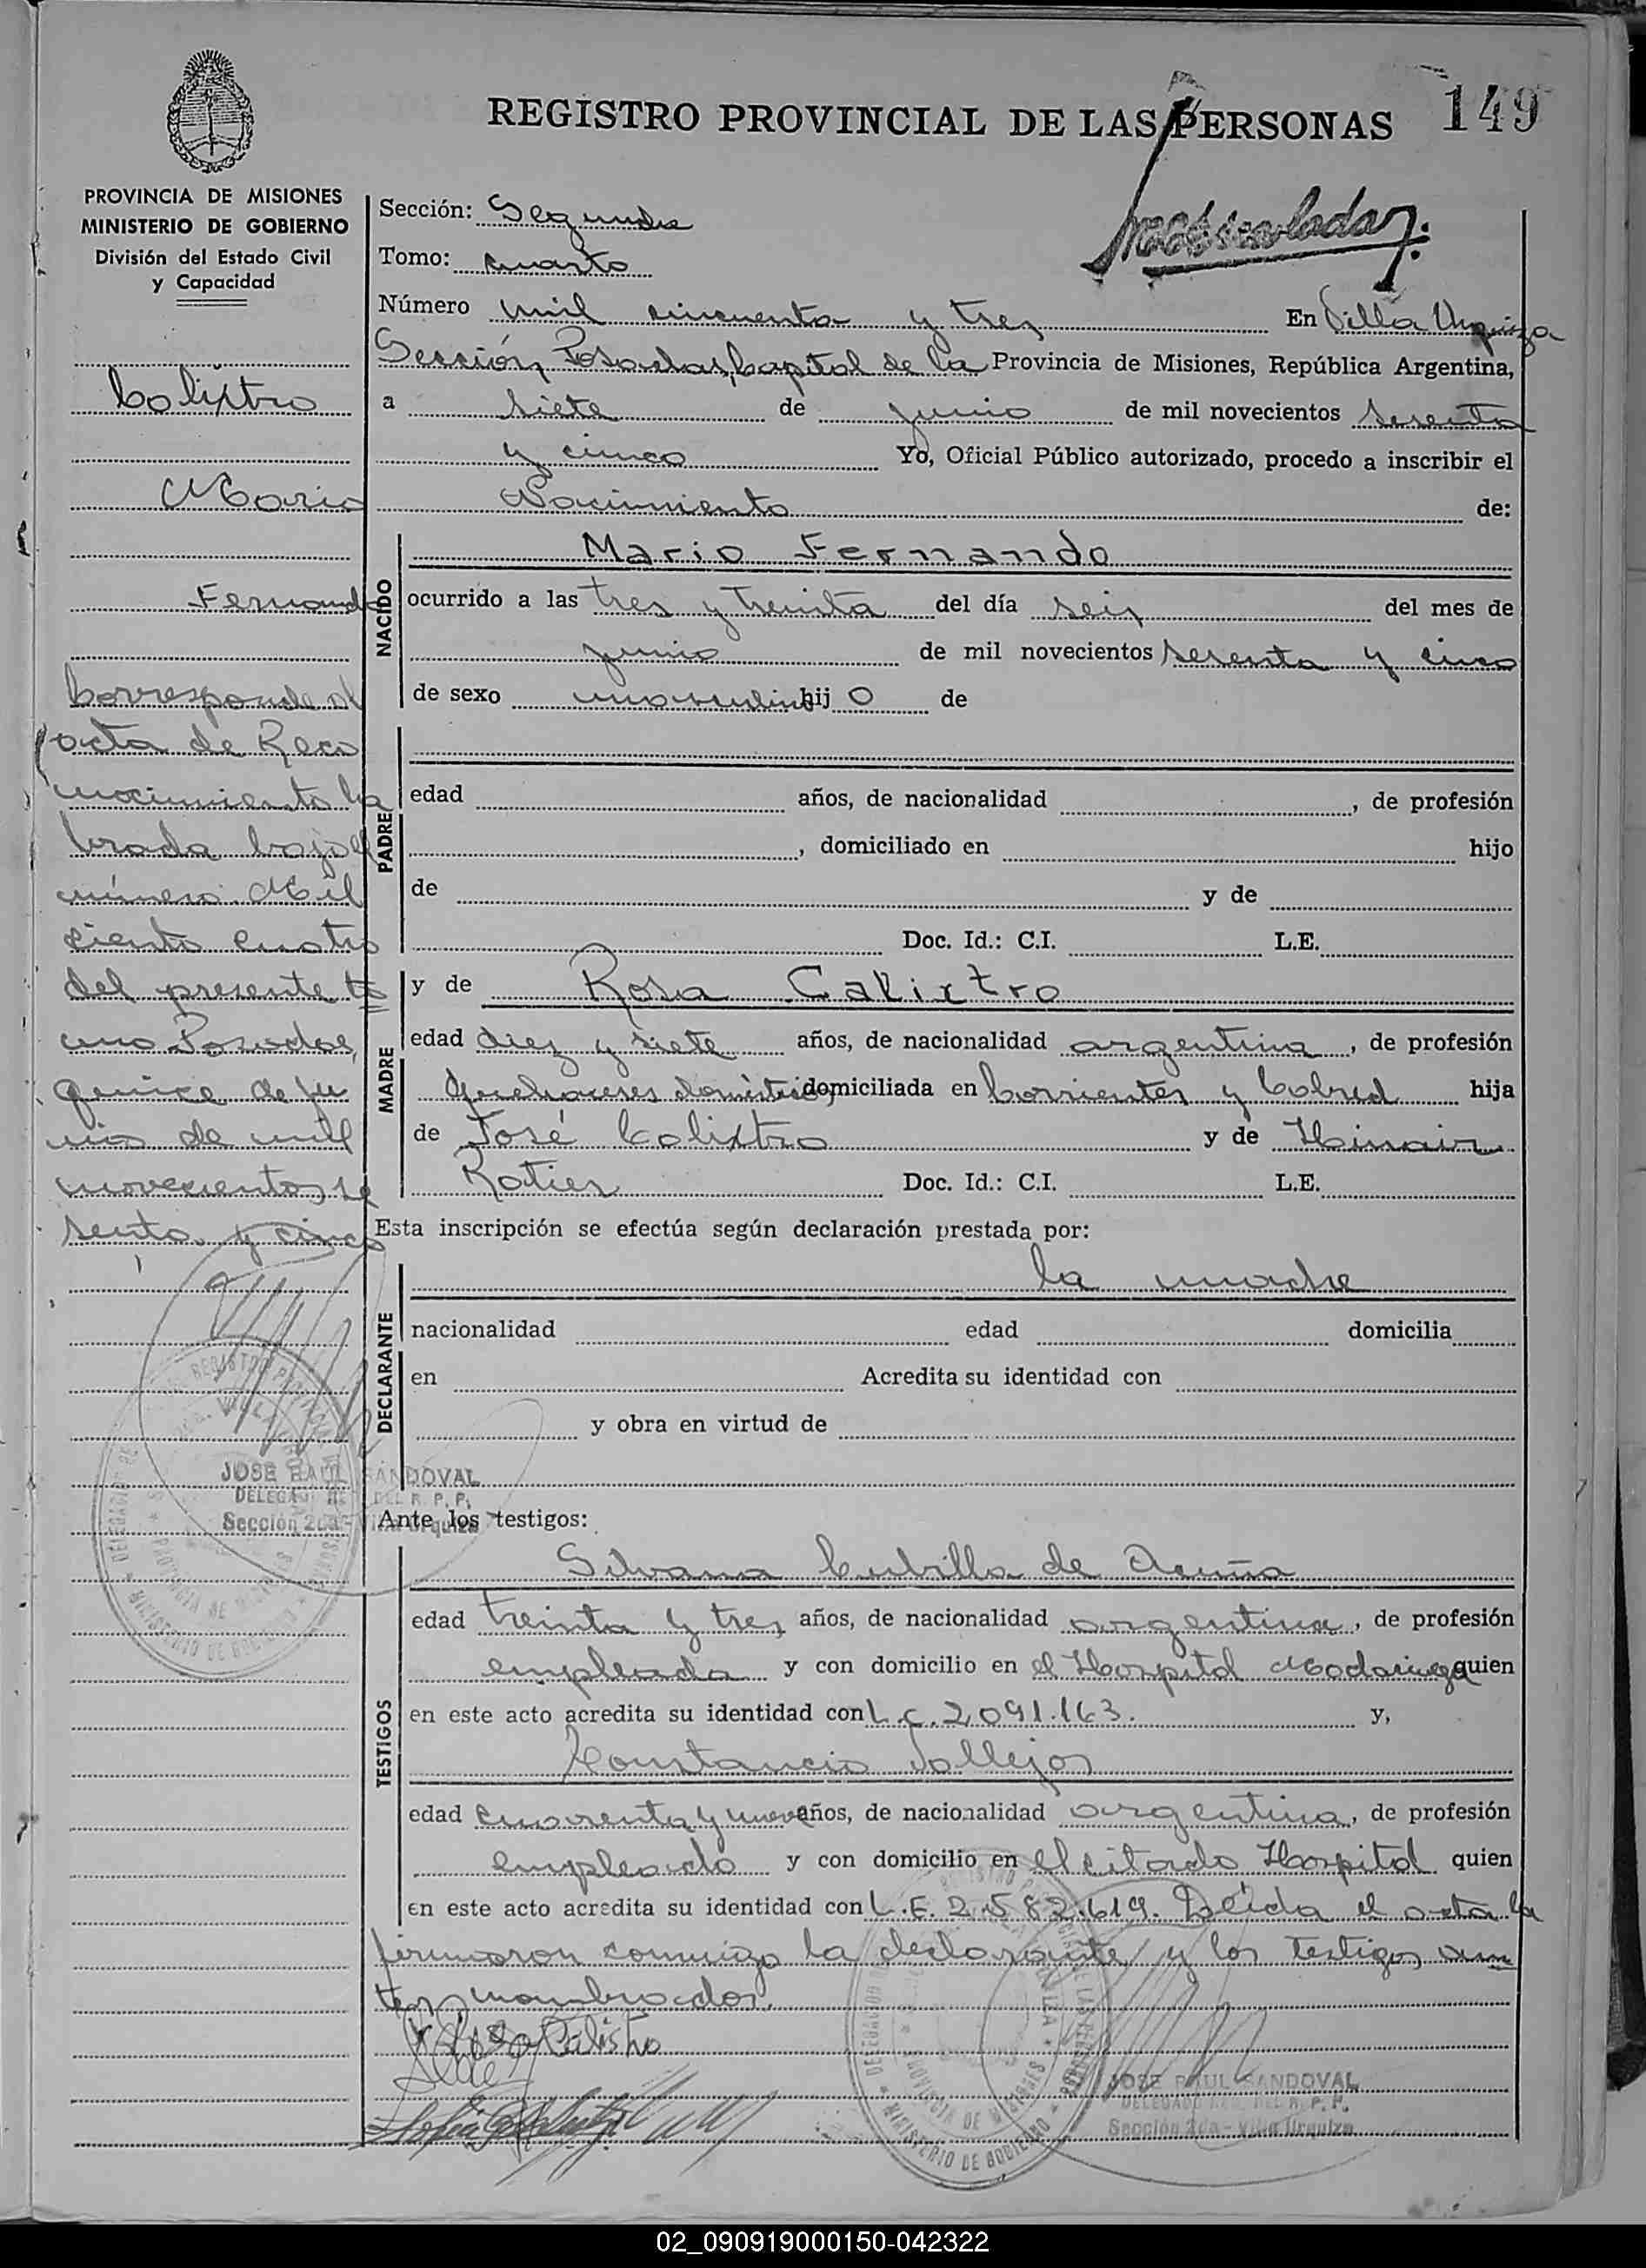 REGISTRO PROVINCIAL DE LAS PERSONAS
149
PROVINCIA DE MISIONES
MINISTERIO DE GOBIERNO
División del Estado Civil
y Capacidad
Calixtro
Mario
Fernando
Corresponde al
acta de Reco
nocimiento la
brada bajo el
número Mil
ciento cuatro
del presente to
mo Posadas,
quince de ju
nio de mil
novecientos se
senta y cinco
JOSE RAUL SANDOVAL
DELEGADO DEL R. P. P.
Sección 2da - Villa Urquiza
Sección: Segunda
Tomo: cuarto
Número mil cincuenta y tres En Villa Urquiza
Sección, Posadas, Capital de la Provincia de Misiones, República Argentina,
a siete de junio de mil novecientos sesenta
y cinco Yo, Oficial Público autorizado, procedo a inscribir el
Nacimiento de:
NACIDO
Mario Fernando
ocurrido a las tres y treinta del día seis del mes de
junio de mil novecientos sesenta y cinco
de sexo masculino hijo de
PADRE
edad años, de nacionalidad , de profesión
, domiciliado en hijo
de y de
Doc. Id.: C.I. L.E.
MADRE
y de Rosa Calixtro
edad diez y siete años, de nacionalidad argentina, de profesión
quehaceres domésticos domiciliada en Corrientes y Cabred hija
de José Calixtro y de
Doc. Id.: C.I. L.E.
Esta inscripción se efectúa según declaración prestada por:
DECLARANTE
la madre
nacionalidad edad domicilia
en Acredita su identidad con
y obra en virtud de
Ante los testigos:
TESTIGOS
Silvana Cubilla de Acuña
edad treinta y tres años, de nacionalidad argentina, de profesión
empleada y con domicilio en el Hospital Madariaga quien
en este acto acredita su identidad con L.C. 2.091.163. y,
Constancio Vallejos
edad cuarenta y nueve años, de nacionalidad argentina, de profesión
empleado y con domicilio en el citado Hospital quien
en este acto acredita su identidad con L.E. 2.582.619. Leída el acta la
firmaron conmigo la declarante y los testigos an
tes nombrados.
Rosa Calistro
JOSE RAUL SANDOVAL
DELEGADO DEL R. P. P.
Sección 2da - Villa Urquiza
02_090919000150-042322